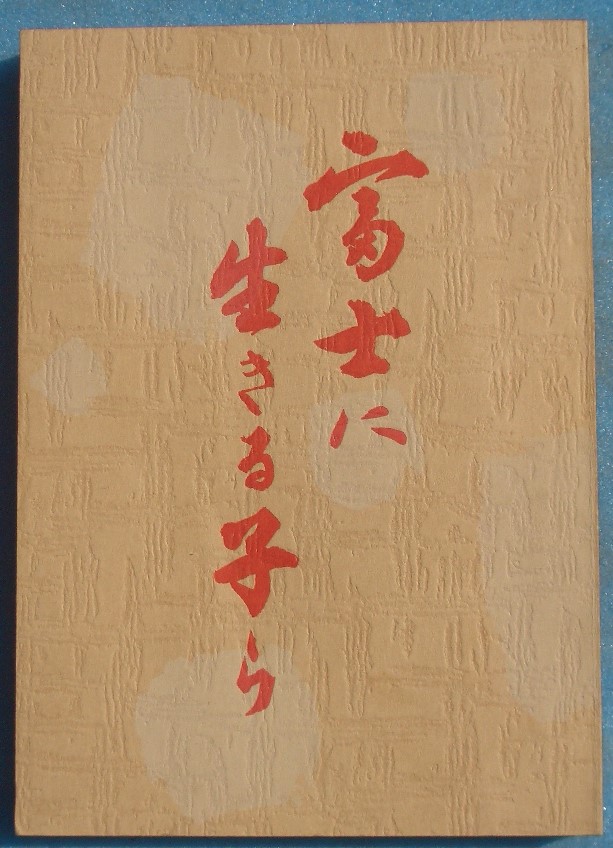 富士に
生きる子ら